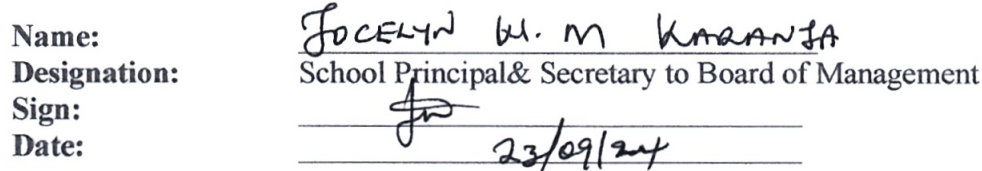 Name: JOCELYN W. M KARANJA
Designation: School Principal& Secretary to Board of Management
Sign:
Date: 23/09/24